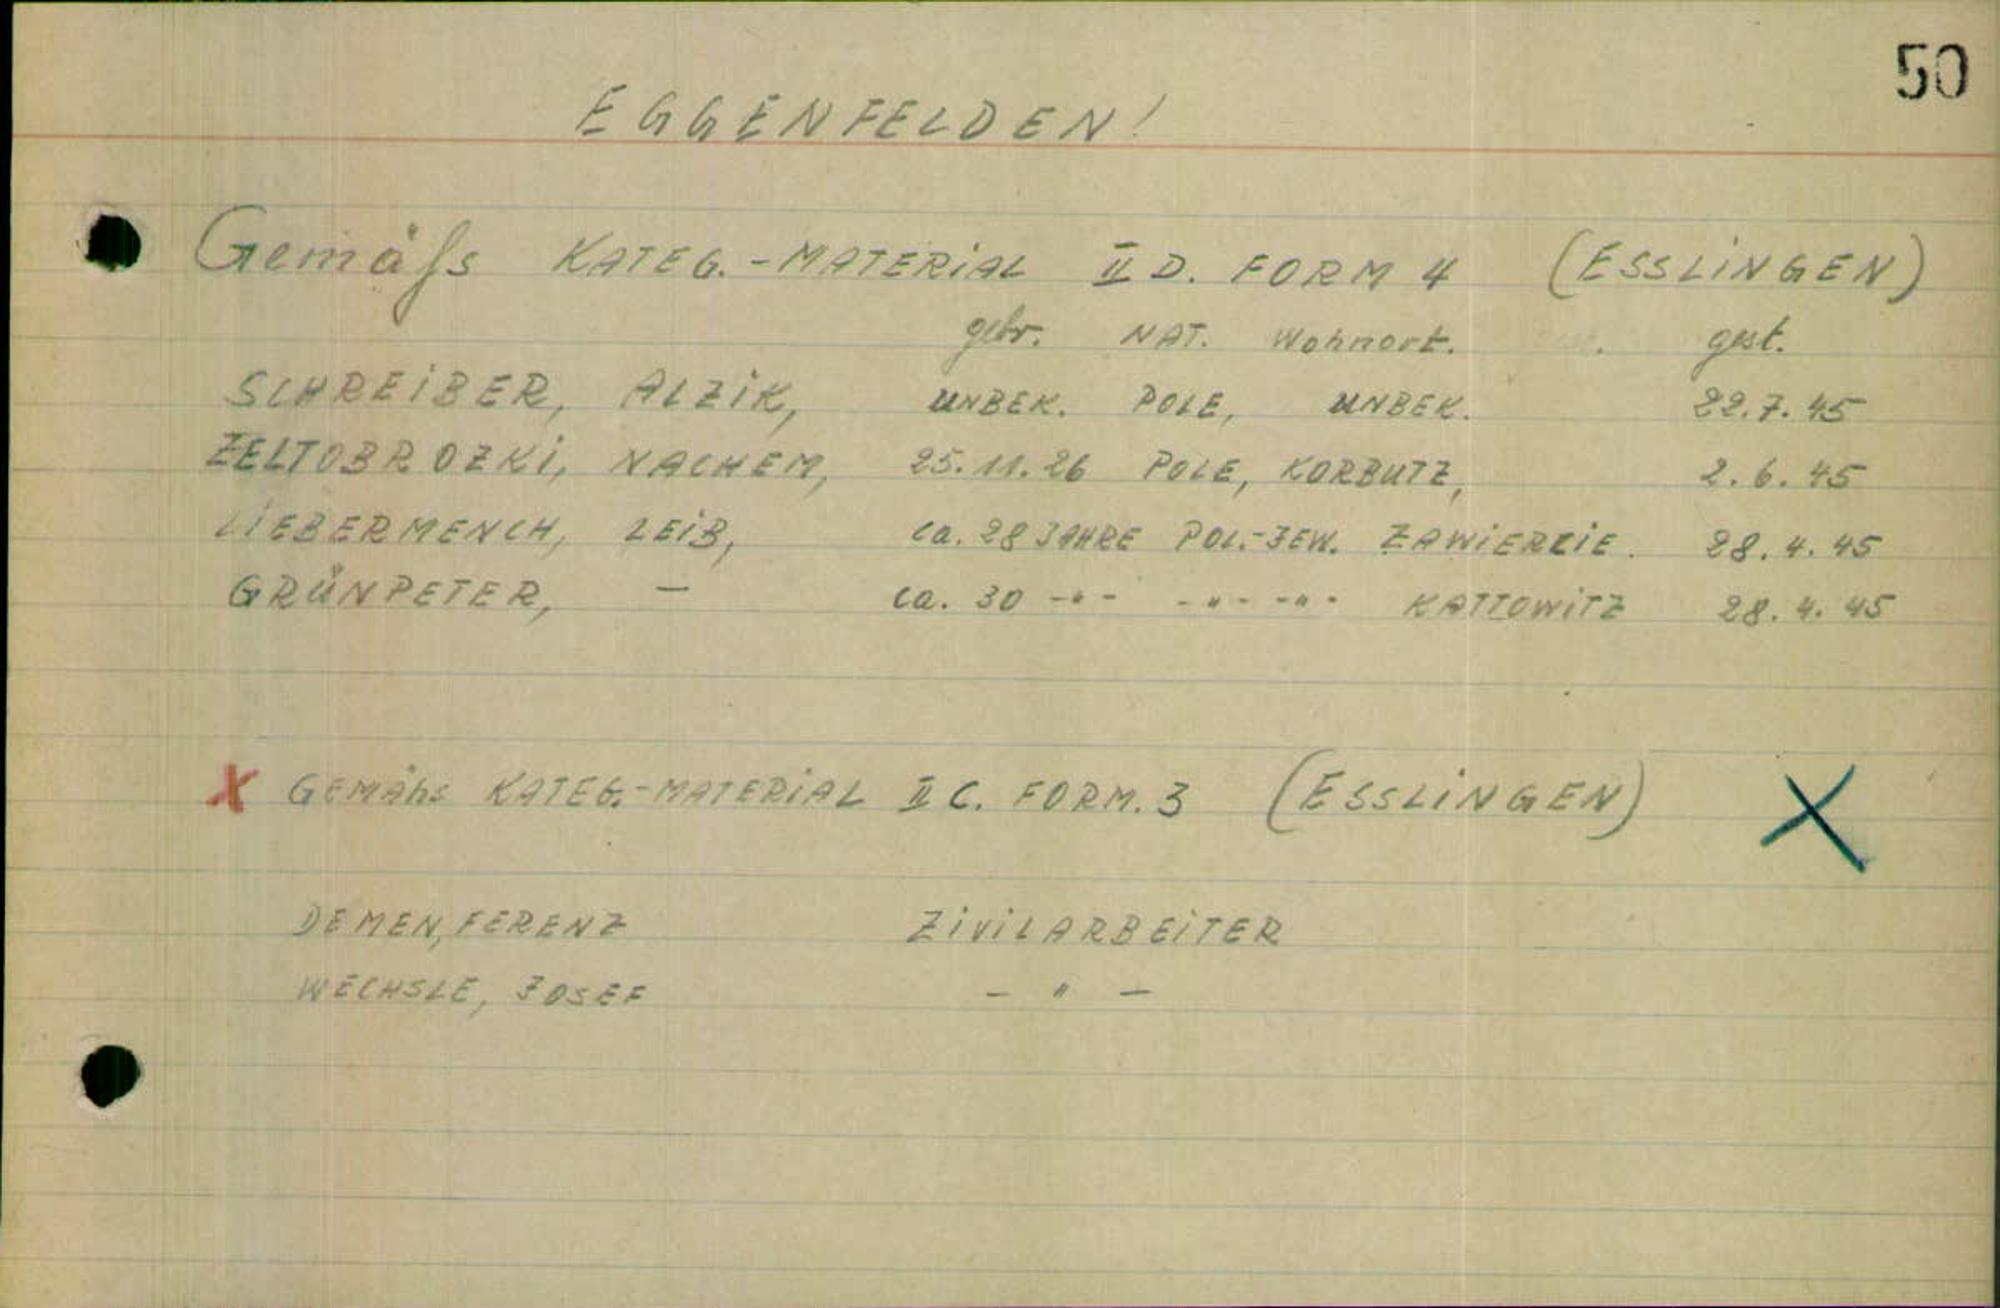 50
EGGENFELDEN!
Gemäſs KATEG.-MATERIAL II D. FORM 4 (ESSLINGEN)
gebr. NAT. Wohnort. gest.
SCHREIBER, ALZIK, UNBEK. POLE, UNBEK. 22.7.45
ZELTOBROZKI, NACHEM, 25.11.26 POLE, KORBUTZ, 2.6.45
LIEBERMENCH, LEIB, ca. 28 JAHRE POL.-JEW. ZAWIERCIE. 28.4.45
GRÜNPETER, - ca. 30 -"- -"- -"- KATTOWITZ 28.4.45
X GEMÄhs KATEG.-MATERIAL II C. FORM. 3 (ESSLINGEN) X
DEMEN, FERENZ ZIVILARBEITER
WECHSLE, JOSEF - " -